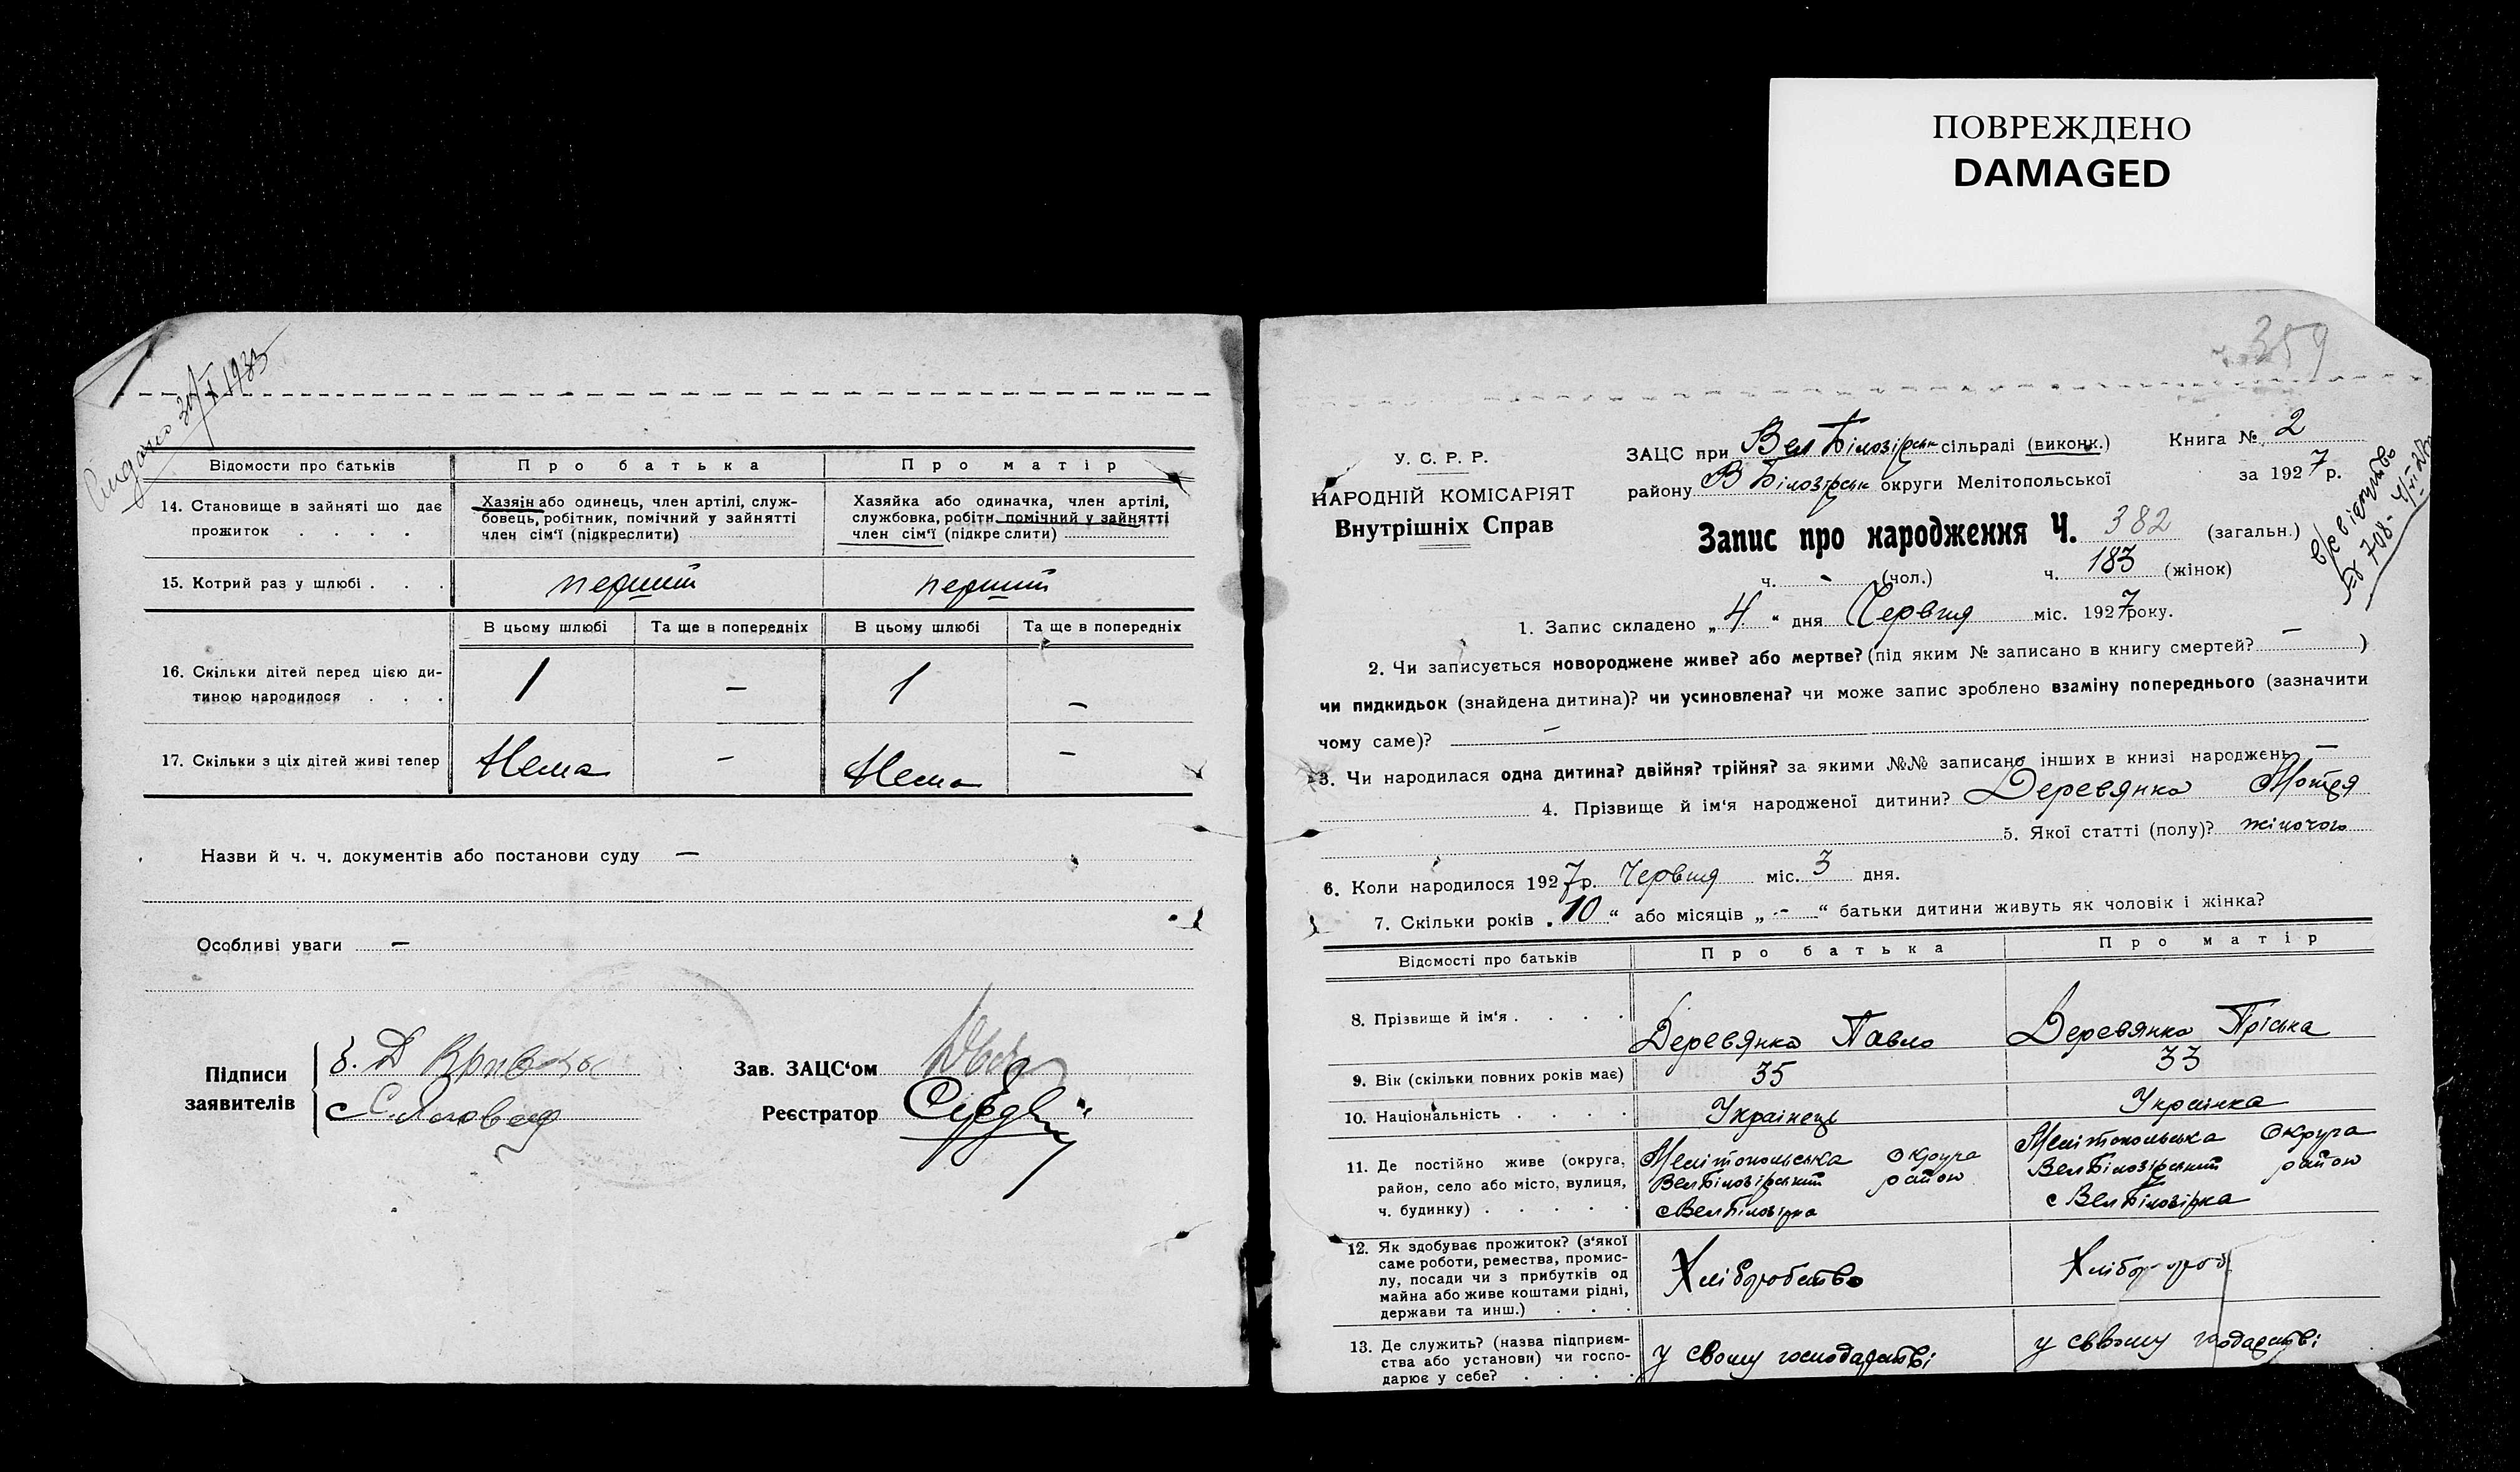 ПОВРЕЖДЕНО
DAMAGED
Відомости про батьків
Про батька
Про матір
14. Становище в зайняті що дає прожиток . . . .
Хазяїн або одинець, член артілі, служ-
бовець, робітник, помічний у зайнятті
член сім'ї (підкреслити)
Хазяйка або одиначка, член артілі,
службовка, робітн. помічний у зайнятті
член сім'ї (підкреслити)
15. Котрий раз у шлюбі . . .
перший
перший
В цьому шлюбі
Та ще в попередніх
В цьому шлюбі
Та ще в попередніх
16. Скільки дітей перед цією ди-
тиною народилося . . .
1
—
1
—
17. Скільки з ціх дітей живі тепер
Нема
—
Нема
—
Назви й ч. ч. документів або постанови суду —
Особливі уваги —
Підписи
заявителів
Зав. ЗАЦС'ом
Реєстратор
359
У. С. Р. Р.
НАРОДНІЙ КОМІСАРІЯТ
Внутрішніх Справ
ЗАЦС при Вел Білозірськ сільраді (виконк.)
Книга № 2
району В Білозірськ округи Мелітопольської
за 1927 р.
Запис про народження Ч. 382 (загальн.)
ч. - (чол.) ч. 183 (жінок)
1. Запис складено „4.“ дня Червня міс. 1927 року.
2. Чи записується новороджене живе? або мертве? (під яким № записано в книгу смертей? — )
чи пидкидьок (знайдена дитина)? чи усиновлена? чи може запис зроблено взаміну попереднього (зазначити
чому саме)? —
3. Чи народилася одна дитина? двійня? трійня? за якими №№ записано інших в книзі народжень —
4. Прізвище й ім'я народженої дитини? Деревянко Мотря
5. Якої статті (полу)? жіночого
6. Коли народилося 1927 р. Червня міс. 3 дня.
7. Скільки років „10“ або місяців „-“ батьки дитини живуть як чоловік і жінка?
Відомості про батьків
Про батька
Про матір
8. Прізвище й ім'я . . . .
Деревянко Павло
Деревянко Пріська
9. Вік (скільки повних років має)
35
33
10. Національність . . . .
Українець
Українка
11. Де постійно живе (округа,
район, село або місто, вулиця,
ч. будинку) . . . . .
Мелітопольська Округа
ВелБілозірський район
с ВелБілозірка
Мелітопольська Округа
ВелБілозірський район
с ВелБілозірка
12. Як здобуває прожиток? (з'якої
саме роботи, ремества, промис-
лу, посади чи з прибутків од
майна або живе коштами рідні,
держави та инш.) . . .
Хліборобство
13. Де служить? (назва підприєм-
ства або установи) чи госпо-
дарює у себе? . . . .
у свому господарстві